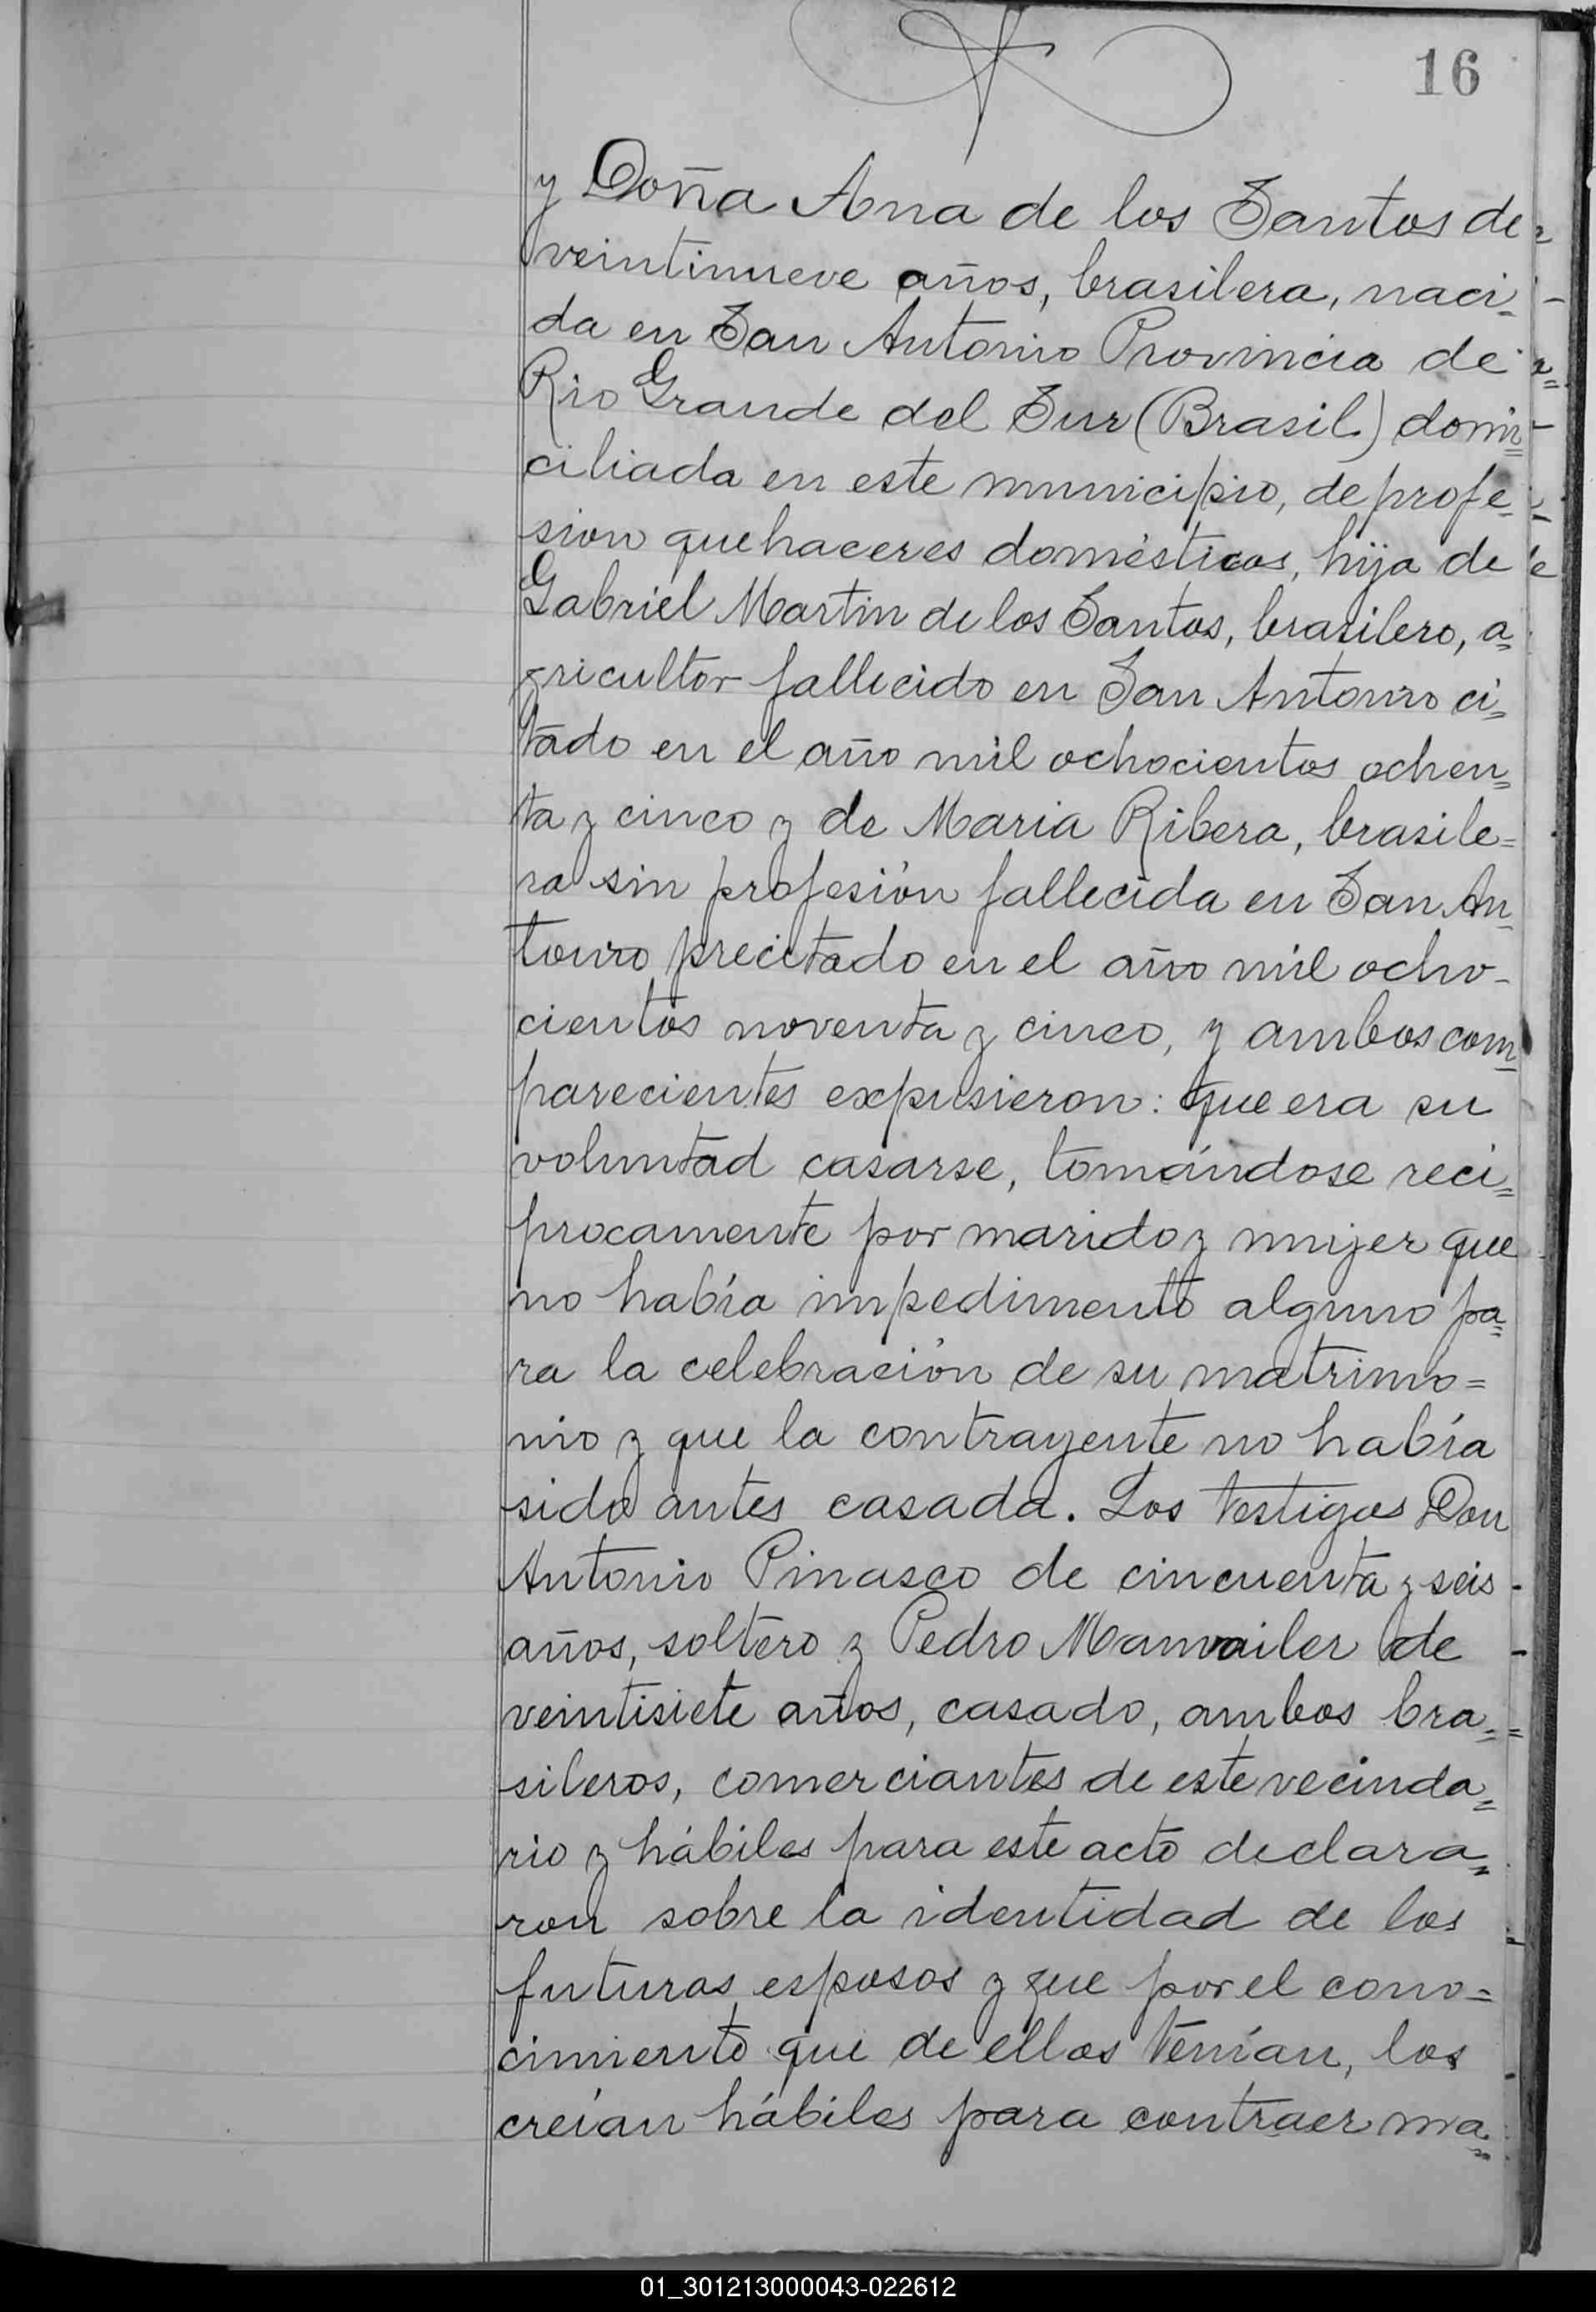 16
y Doña Ana de los Santos de
veintinueve años, brasilera, naci-
da en San Antonio Provincia de
Rio Grande del Sur (Brasil) domi=
ciliada en este municipio, de profe-
sion quehaceres domésticos, hija de
Gabriel Martin de los Santos, brasilero, a=
gricultor fallecido en San Antonio ci=
tado en el año mil ochocientos ochen=
ta y cinco y de Maria Ribera, brasile=
ra sin profesión fallecida en San An-
tonio precitado en el año mil ocho-
cientos noventa y cinco, y ambos com-
parecientes expusieron: que era su
voluntad casarse, tomándose reci=
procamente por marido y mujer que
no había impedimento alguno pa=
ra la celebración de su matrimo=
nio y que la contrayente no había
sido antes casada. Los testigos Don
Antonio Pinasco de cincuenta y seis
años, soltero y Pedro Manvailer de
veintisiete años, casado, ambos bra=
sileros, comerciantes de este vecinda=
rio y hábiles para este acto declara=
ron sobre la identidad de los
futuros esposos y que por el cono=
cimiento que de ellos tenían, los
creían hábiles para contraer ma=
01_301213000043-022612